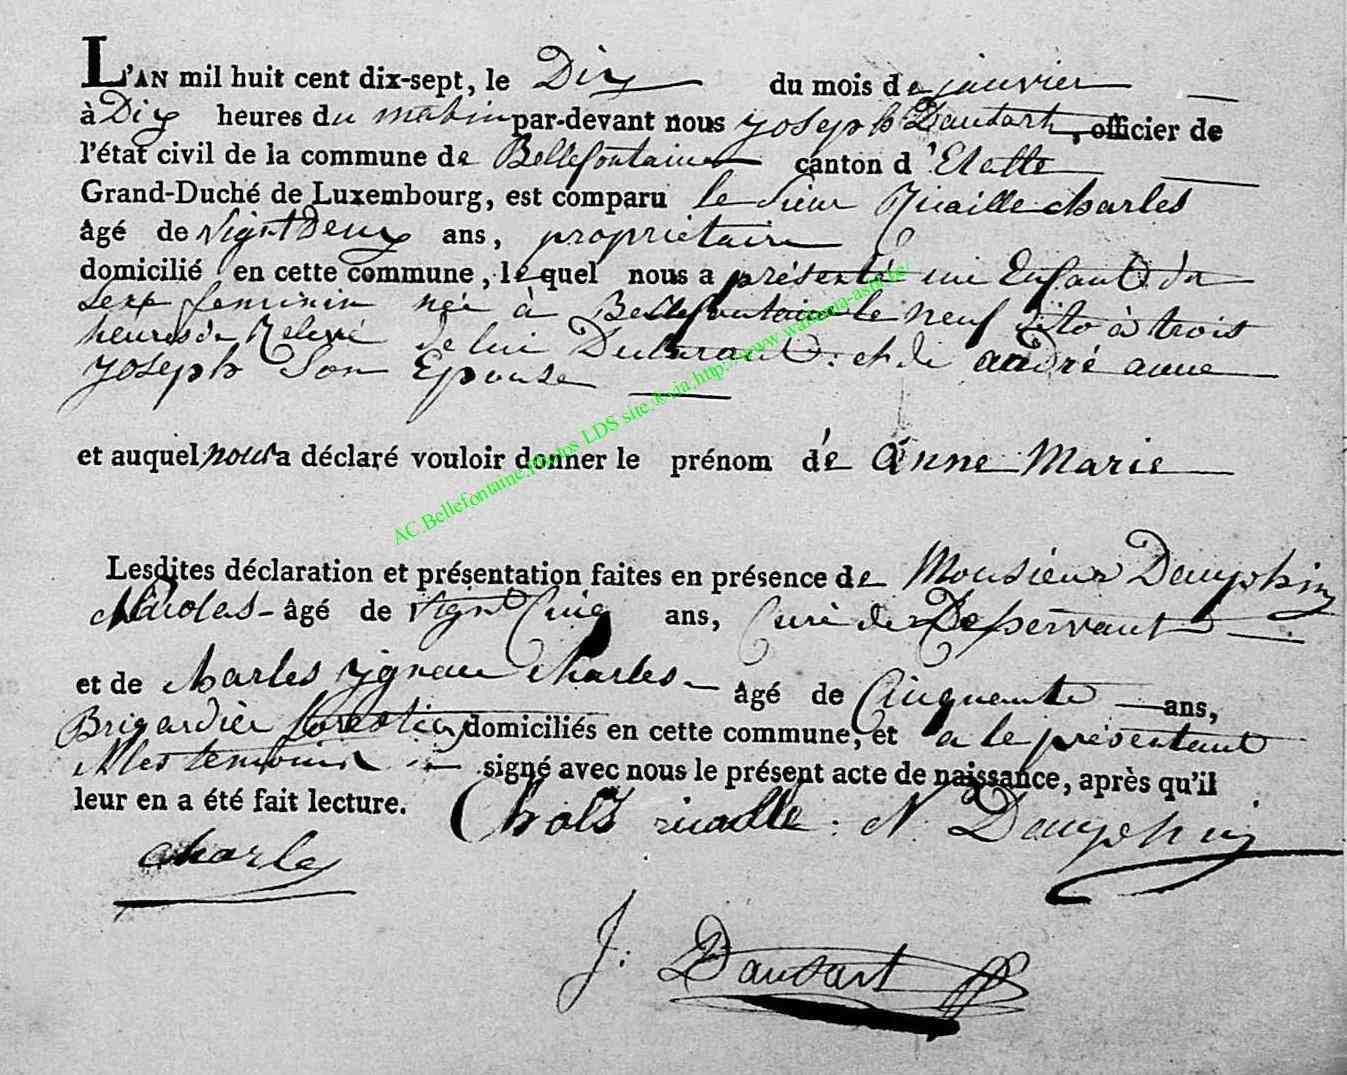 L'AN mil huit cent dix-sept, le Dix du mois de janvier
à Dix heures du matin par-devant nous joseph Dautart, officier de
l'état civil de la commune de Bellefontaine canton d'Etalle
Grand-Duché de Luxembourg, est comparu le Sieur Ricaille charles
âgé de vignt Deux ans, propriétaire
domicilié en cette commune, lequel nous a présenté un Enfant du
Sexe feminin née à Bellefontaine le neuf dito à trois
heures de Relevé de lui Declarant. et de andré anne
joseph Son Epouse
et auquel nous a déclaré vouloir donner le prénom de anne Marie
Lesdites déclaration et présentation faites en présence de Monsieur Dauphin
Nicolas âgé de vignt Cinq ans, Curé de Desservant
et de charles ignace charles âgé de Cinquante ans,
Brigardier forestier domiciliés en cette commune, et a le présentant
et les temoins signé avec nous le présent acte de naissance, après qu'il
leur en a été fait lecture.
Chals ricaille. N Dauphin
charles
J: Dautart
AC Bellefontaine.Photos LDS site Kwia http://www.wallonia-asbl.be/